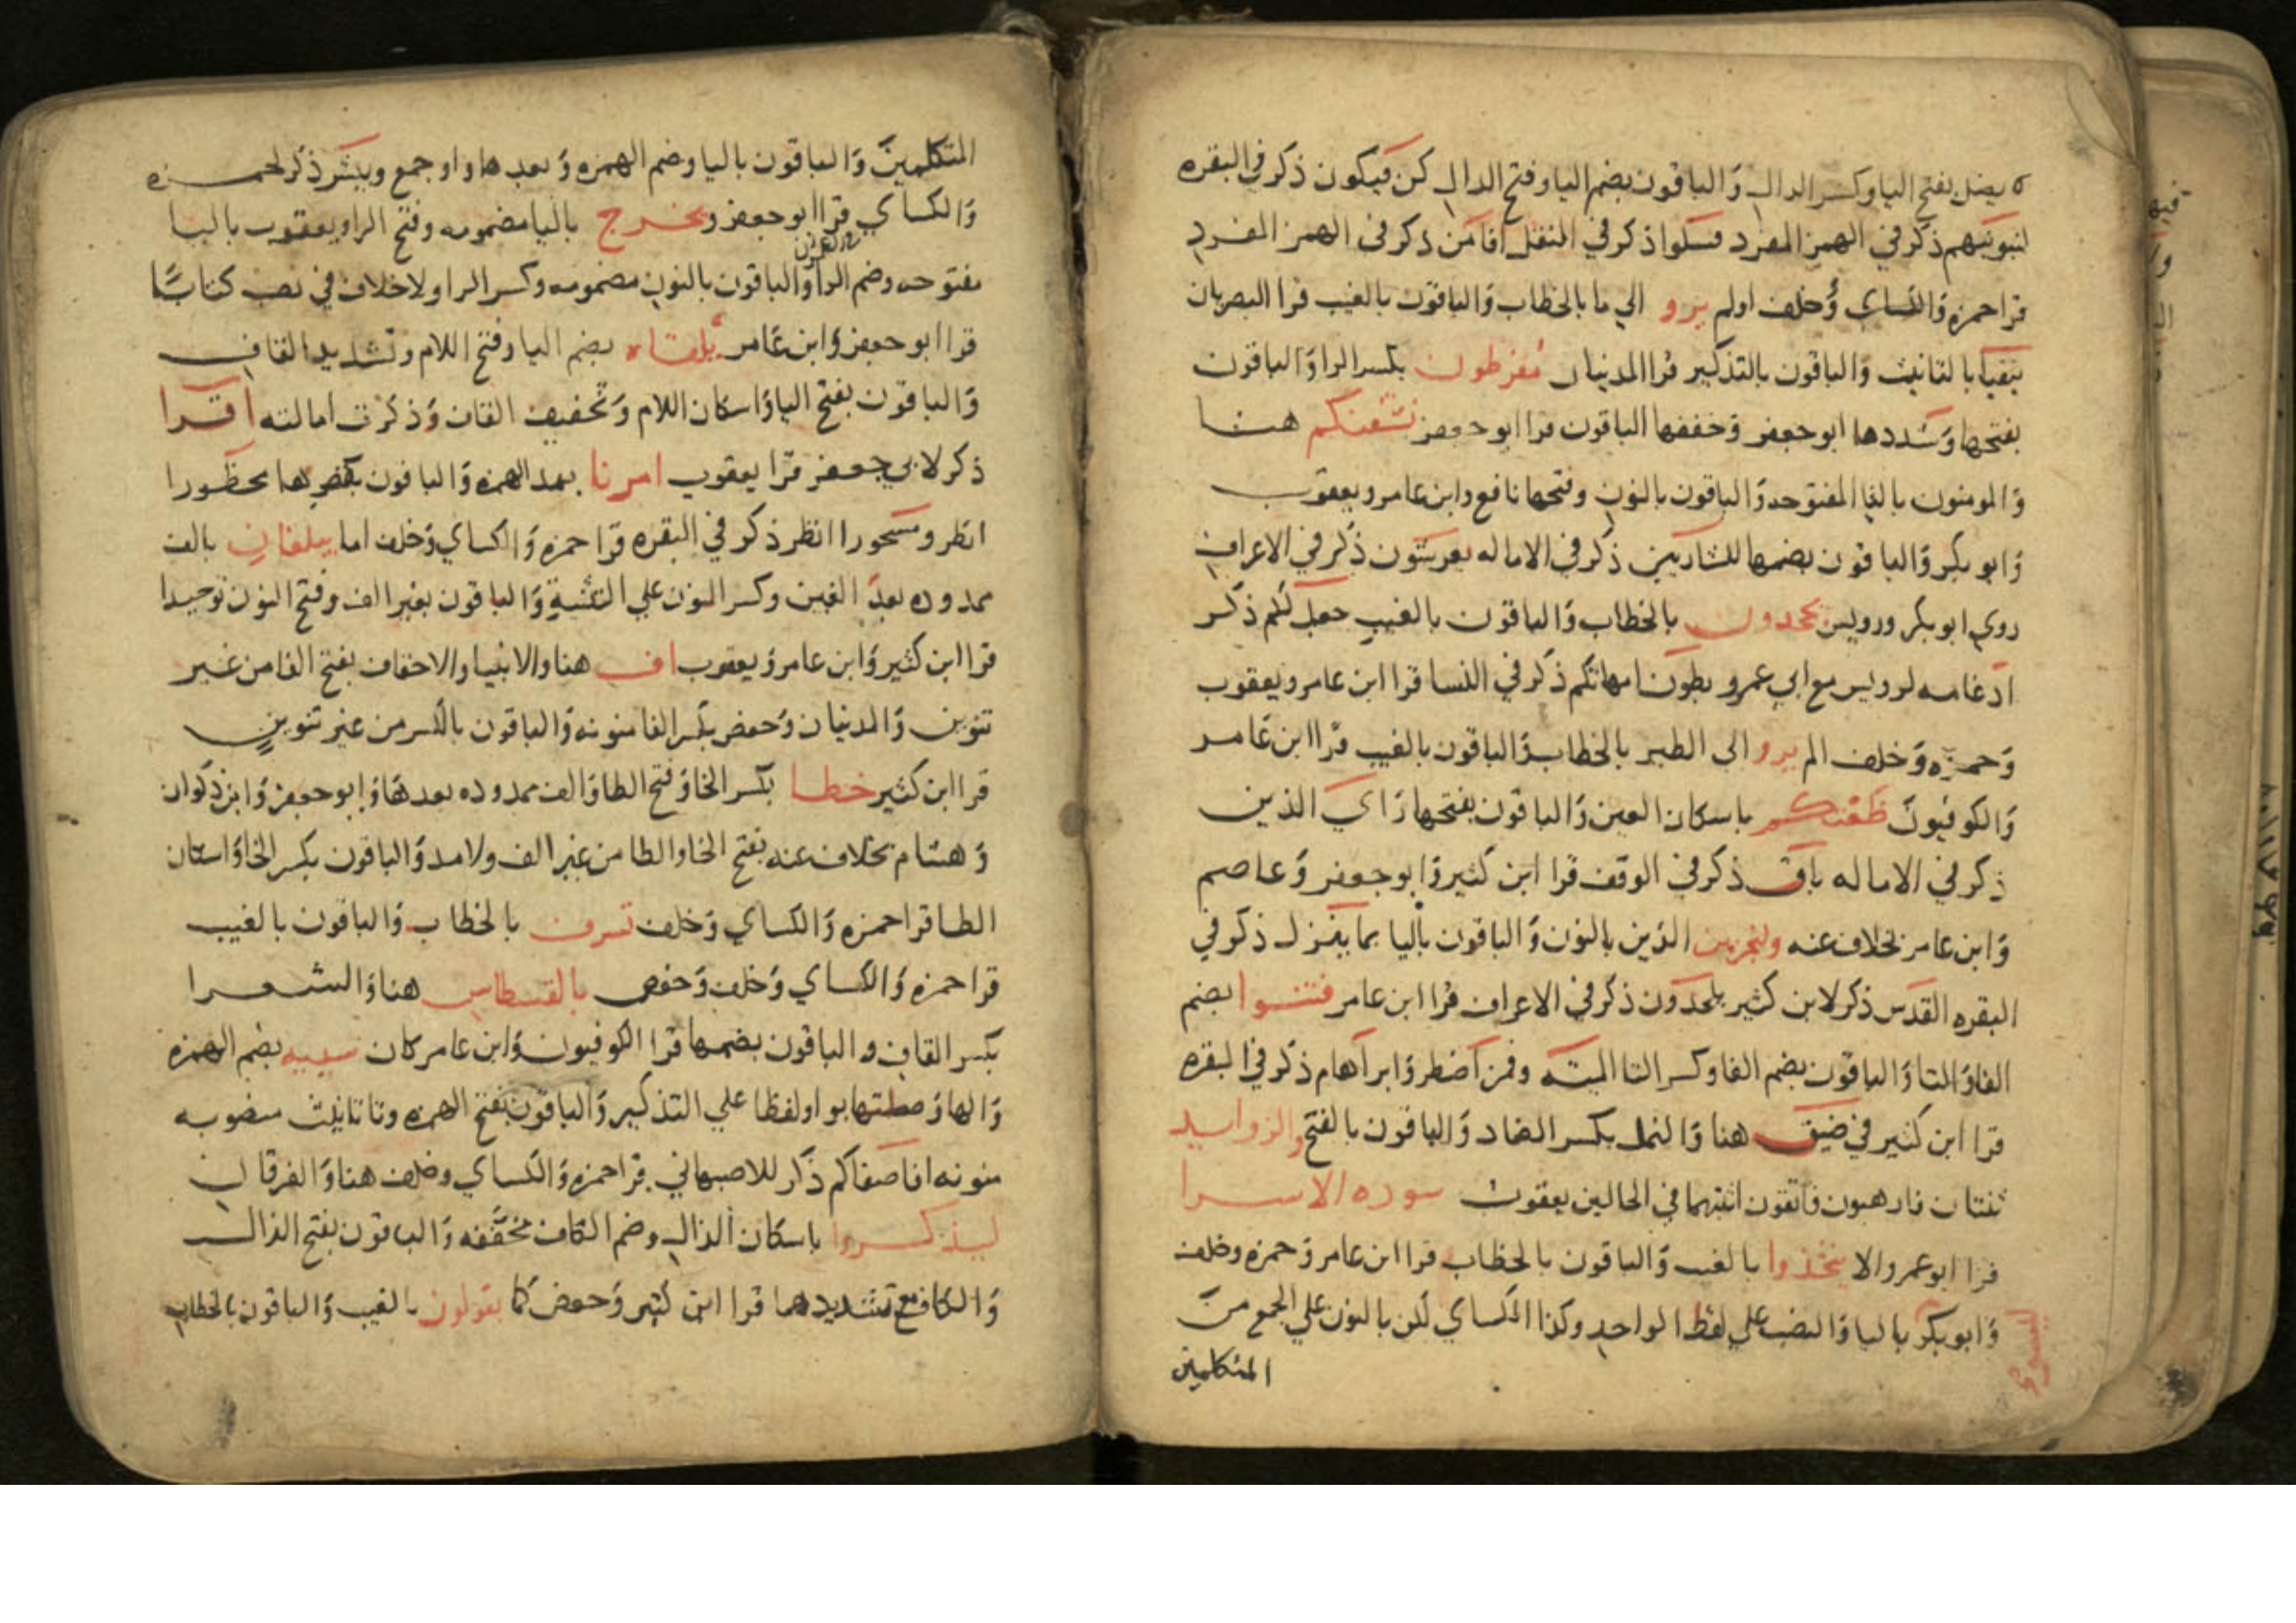 يضل بفتح اليا وكسر الدال وَالباقون بضم اليا وفتح الدال كن فيكون ذكر في البقره
لنبوئنهم ذكر في الهمز المفرد فسلوا ذكر في النقل افامن ذكر في الهمز المفرد
قرا حمزه وَالكساي وَخلف اولم يرو الي ما بالخطاب وَالباقون بالغيب قرا البصريان
يتفيا بالتانيث وَالباقون بالتذكير قرا المدنيان مفرطون بكسر الرا وَالباقون
بفتحها وَشددها ابو جعفر وَخففها الباقون قرا ابو جعفر نسقيكم هنا
وَالمومنون بالتا المفتوحه وَالباقون بالنون وفتحها نافع وابن عامر ويعقوب
وَابو بكر وَالباقون بضمها للشاربين ذكر في الاماله يعرشون ذكر في الاعراف
روي ابو بكر ورويس يجحدون بالخطاب وَالباقون بالغيب جعل لكم ذكر
ادغامه لرويس مع ابي عمرو بطون امهاتكم ذكر في النسا قرا ابن عامر ويعقوب
وَحمزه وَخلف الم يرو الي الطير بالخطاب وَالباقون بالغيب قرا ابن عَامر
وَالكوفيون ظعنكم باسكان العين وَالباقون بفتحها رَاي الذين
ذكر في الاماله باق ذكر في الوقف قرا ابن كثير وَابو جعفر وَعاصم
وَابن عامر بخلاف عنه ولنجزين الذين بالنون وَالباقون باليا بما ينزل ذكر في
البقره القدس ذكر لابن كثير يلحدون ذكر في الاعراف قرا ابن عامر فتنوا بضم
الفا وَالتا وَالباقون بضم الفا وكسر التا الميته وفمن اضطر وَابراهام ذكر في البقره
قرا ابن كثير في ضيق هنا وَالنمل بكسر الضاد وَالباقون بالفتح والزوايد
ثنتان فارهبون فاتقون اثبتهما في الحالين يعقوب سوره الاسرا
قرا ابو عمرو الا يتخذوا بالغيب وَالباقون بالخطاب قرا ابن عامر وَحمزه وخلف
وَابو بكر باليا وَالنصب علي لفظ الواحد وكذا الكساي لكن بالنون علي الجمع من
المتكلمين
المتكلمين وَالباقون باليا وضم الهمزه وَبعدها واو جمع ويبشر ذكر لحمزه
وَالكساي قرا ابو جعفر ونخرج باليا مضمومه وفتح الرا ويعقوب باليا
مفتوحه وضم الرا وَالباقون بالنون مضمومه وكسر الرا ولاخلاف في نصب كتابًا
قرا ابو جعفر وَابن عَامر يلقاه بضم اليا وفتح اللام وتشديد القاف
وَالباقون بفتح اليا وَاسكان اللام وَتخفيف القاف وَذكرت امالته اقرا
ذكر لابي جعفر قرا يعقوب امرنا بمد الهمزه وَالباقون بقصرها محظورا
انظر ومسحورا انظر ذكر في البقره قرا حمزه وَالكساي وَخلف اما يبلغان بالف
ممدوده بعد الغين وكسر النون علي التثنية وَالباقون بغير الف وفتح النون توحيدا
قرا ابن كثير وَابن عامر وَيعقوب اف هنا والانبيا والاحقاف بفتح الفا من غير
تنوين وَالمدنيان وَحفص بكسر الفا منونه وَالباقون بالكسر من غير تنوين
قرا ابن كثير خطا بكسر الخا وَفتح الطا وَالف ممدوده بعدها وَابو جعفر وَابن ذكوان
وَهشام بخلاف عنه بفتح الخا والطا من غير الف ولا مد وَالباقون بكسر الخا وَاسكان
الطا قرا حمزه وَالكساي وَخلف تسرف بالخطاب وَالباقون بالغيب
قرا حمزه وَالكساي وَخلف وَحفص بالقسطاس هنا وَالشعرا
بكسر القاف وَالباقون بضمها قرا الكوفيون وَابن عامر كان سييه بضم الهمزه
وَالها وَصلتها بواو لفظا علي التذكير وَالباقون بفتح الهمزه وتا تانيث منصوبه
منونه افاصفاكم ذكر للاصبهاني قرا حمزه وَالكساي وخلف هنا وَالفرقان
ليذكروا باسكان الذال وضم الكاف مخفَّفه وَالباقون بفتح الذال
وَالكاف مع تشديدهما قرا ابن كثير وَحفص كما يقولون بالغيب وَالباقون بالخطاب